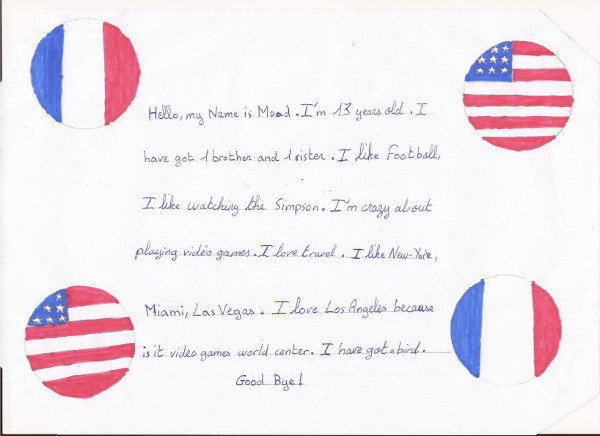 Hello, my Name is Moad. I'm 13 years old. I
have got 1 brother and 1 sister. I like Football,
I like watching the Simpson. I'm crazy about
playing vidéo games. I love travel. I like New-York,
Miami, Las Vegas. I love Los Angeles because
is it video games world center. I have got a bird.
Good Bye!